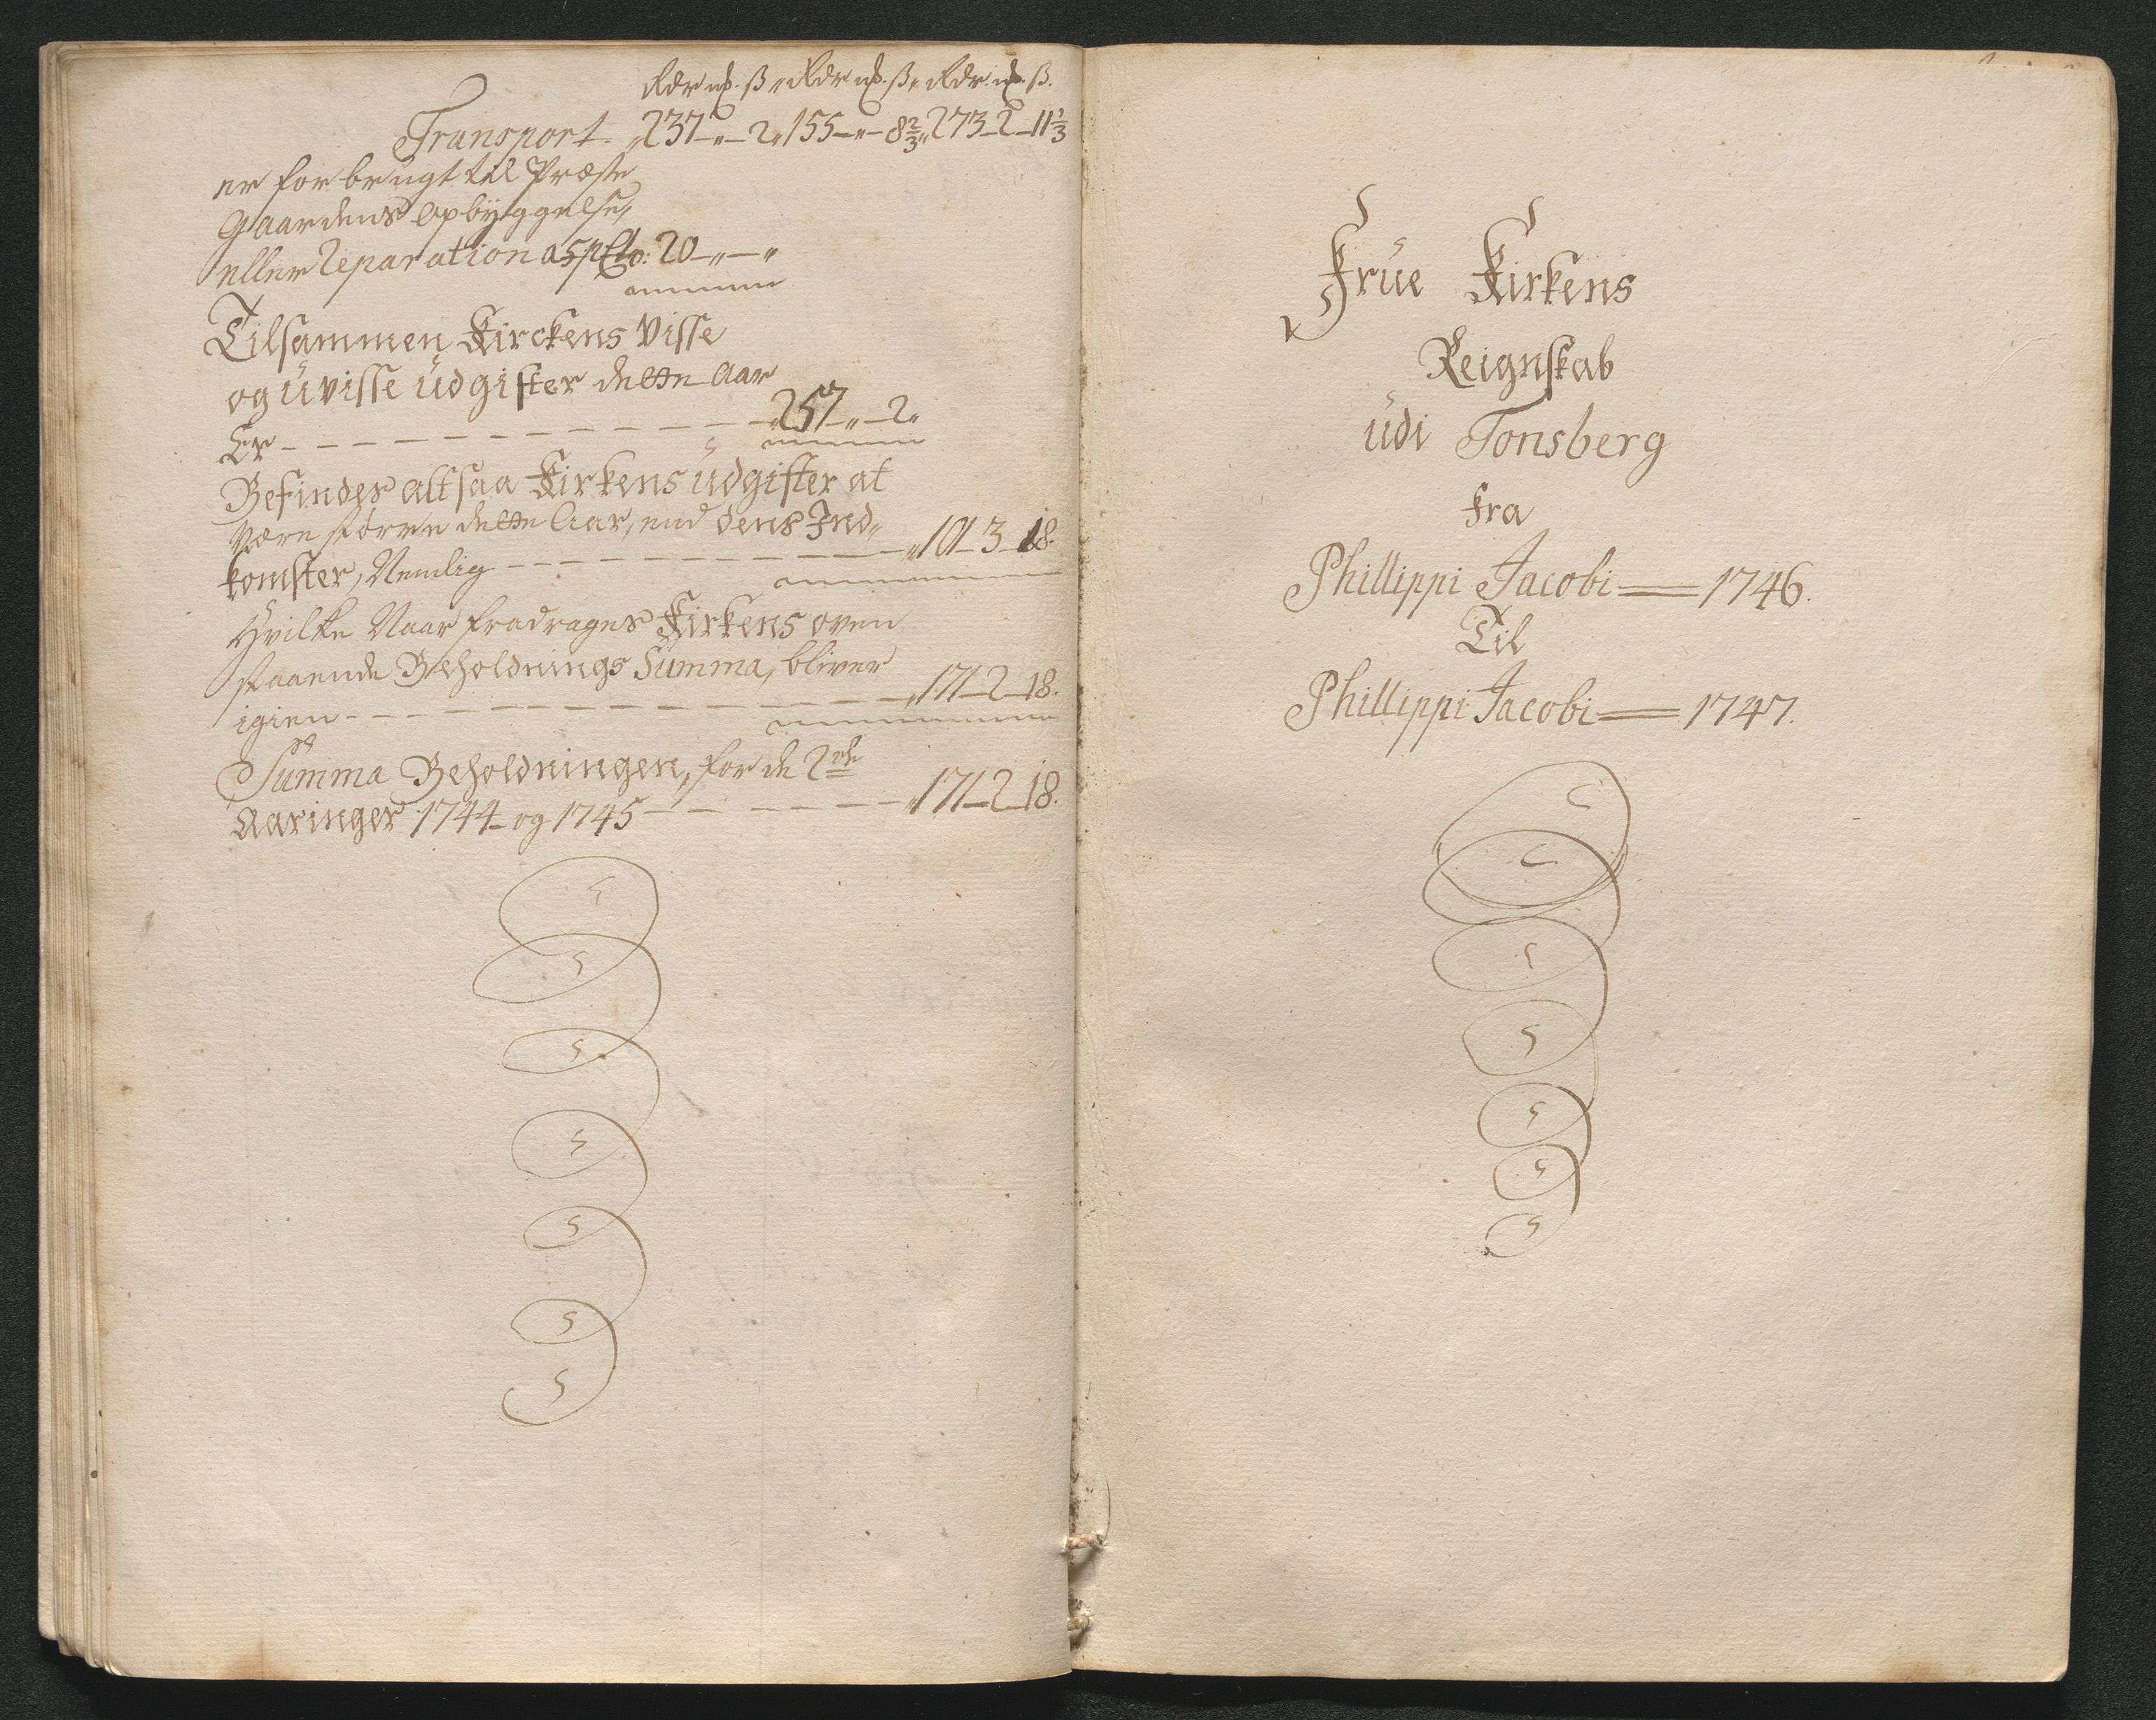 Rdr mk. ß „ Rdr mk. ß „ Rdr. mk. ß.
Transport. „237„-„-2„155-„-8⅔„273-2-11⅓
er forbrugt til Præste
Gaardens Opbyggelse,
eller Reparation a 5 pCto: 20-„-„
Tilsammen Kirckens Visse
og Uvisse Udgifter dette Aar
Er - - - „257„-2„
Befindes altsaa Kirkens Udgifter at
være større dette Aar, end dens Ind-
komster, Nemlig - - - „101-3-18.
Hvilke Naar fradrages Kirkens oven
staaende Beholdnings Summa, bliver
igien - - - „171-2-18.
Summa Beholdningen, for de 2de
Aaringer 1744 og 1745 - - - „171-2-18.
Frue Kirkens
Reignskab
udi Tonsberg
fra
Phillippi Jacobi = 1746.
Til
Phillippi Jacobi = 1747.